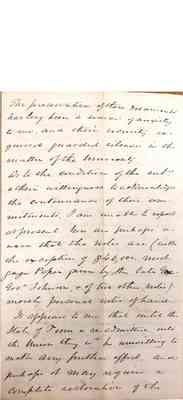 The preservation of these Documents
has long been a source of anxiety
to me, and their security re-
quired guarded silence in the
matter of the University
As to the condition of the
& their willingness to acknowledge
the continuance of their com-
mitments, I am unable to report
at present. You are perhaps a-
ware that the notes are (with
the exception of $ mort
gage Paper given by the late Ex
Gov. Johnson, & of two other notes)
merely personal notes of hand.
It appears to me that until the
State of Tenn is re admitted into
the Union they will be unwilling to
make any further effort and
perhaps it may require a
complete restoration of the